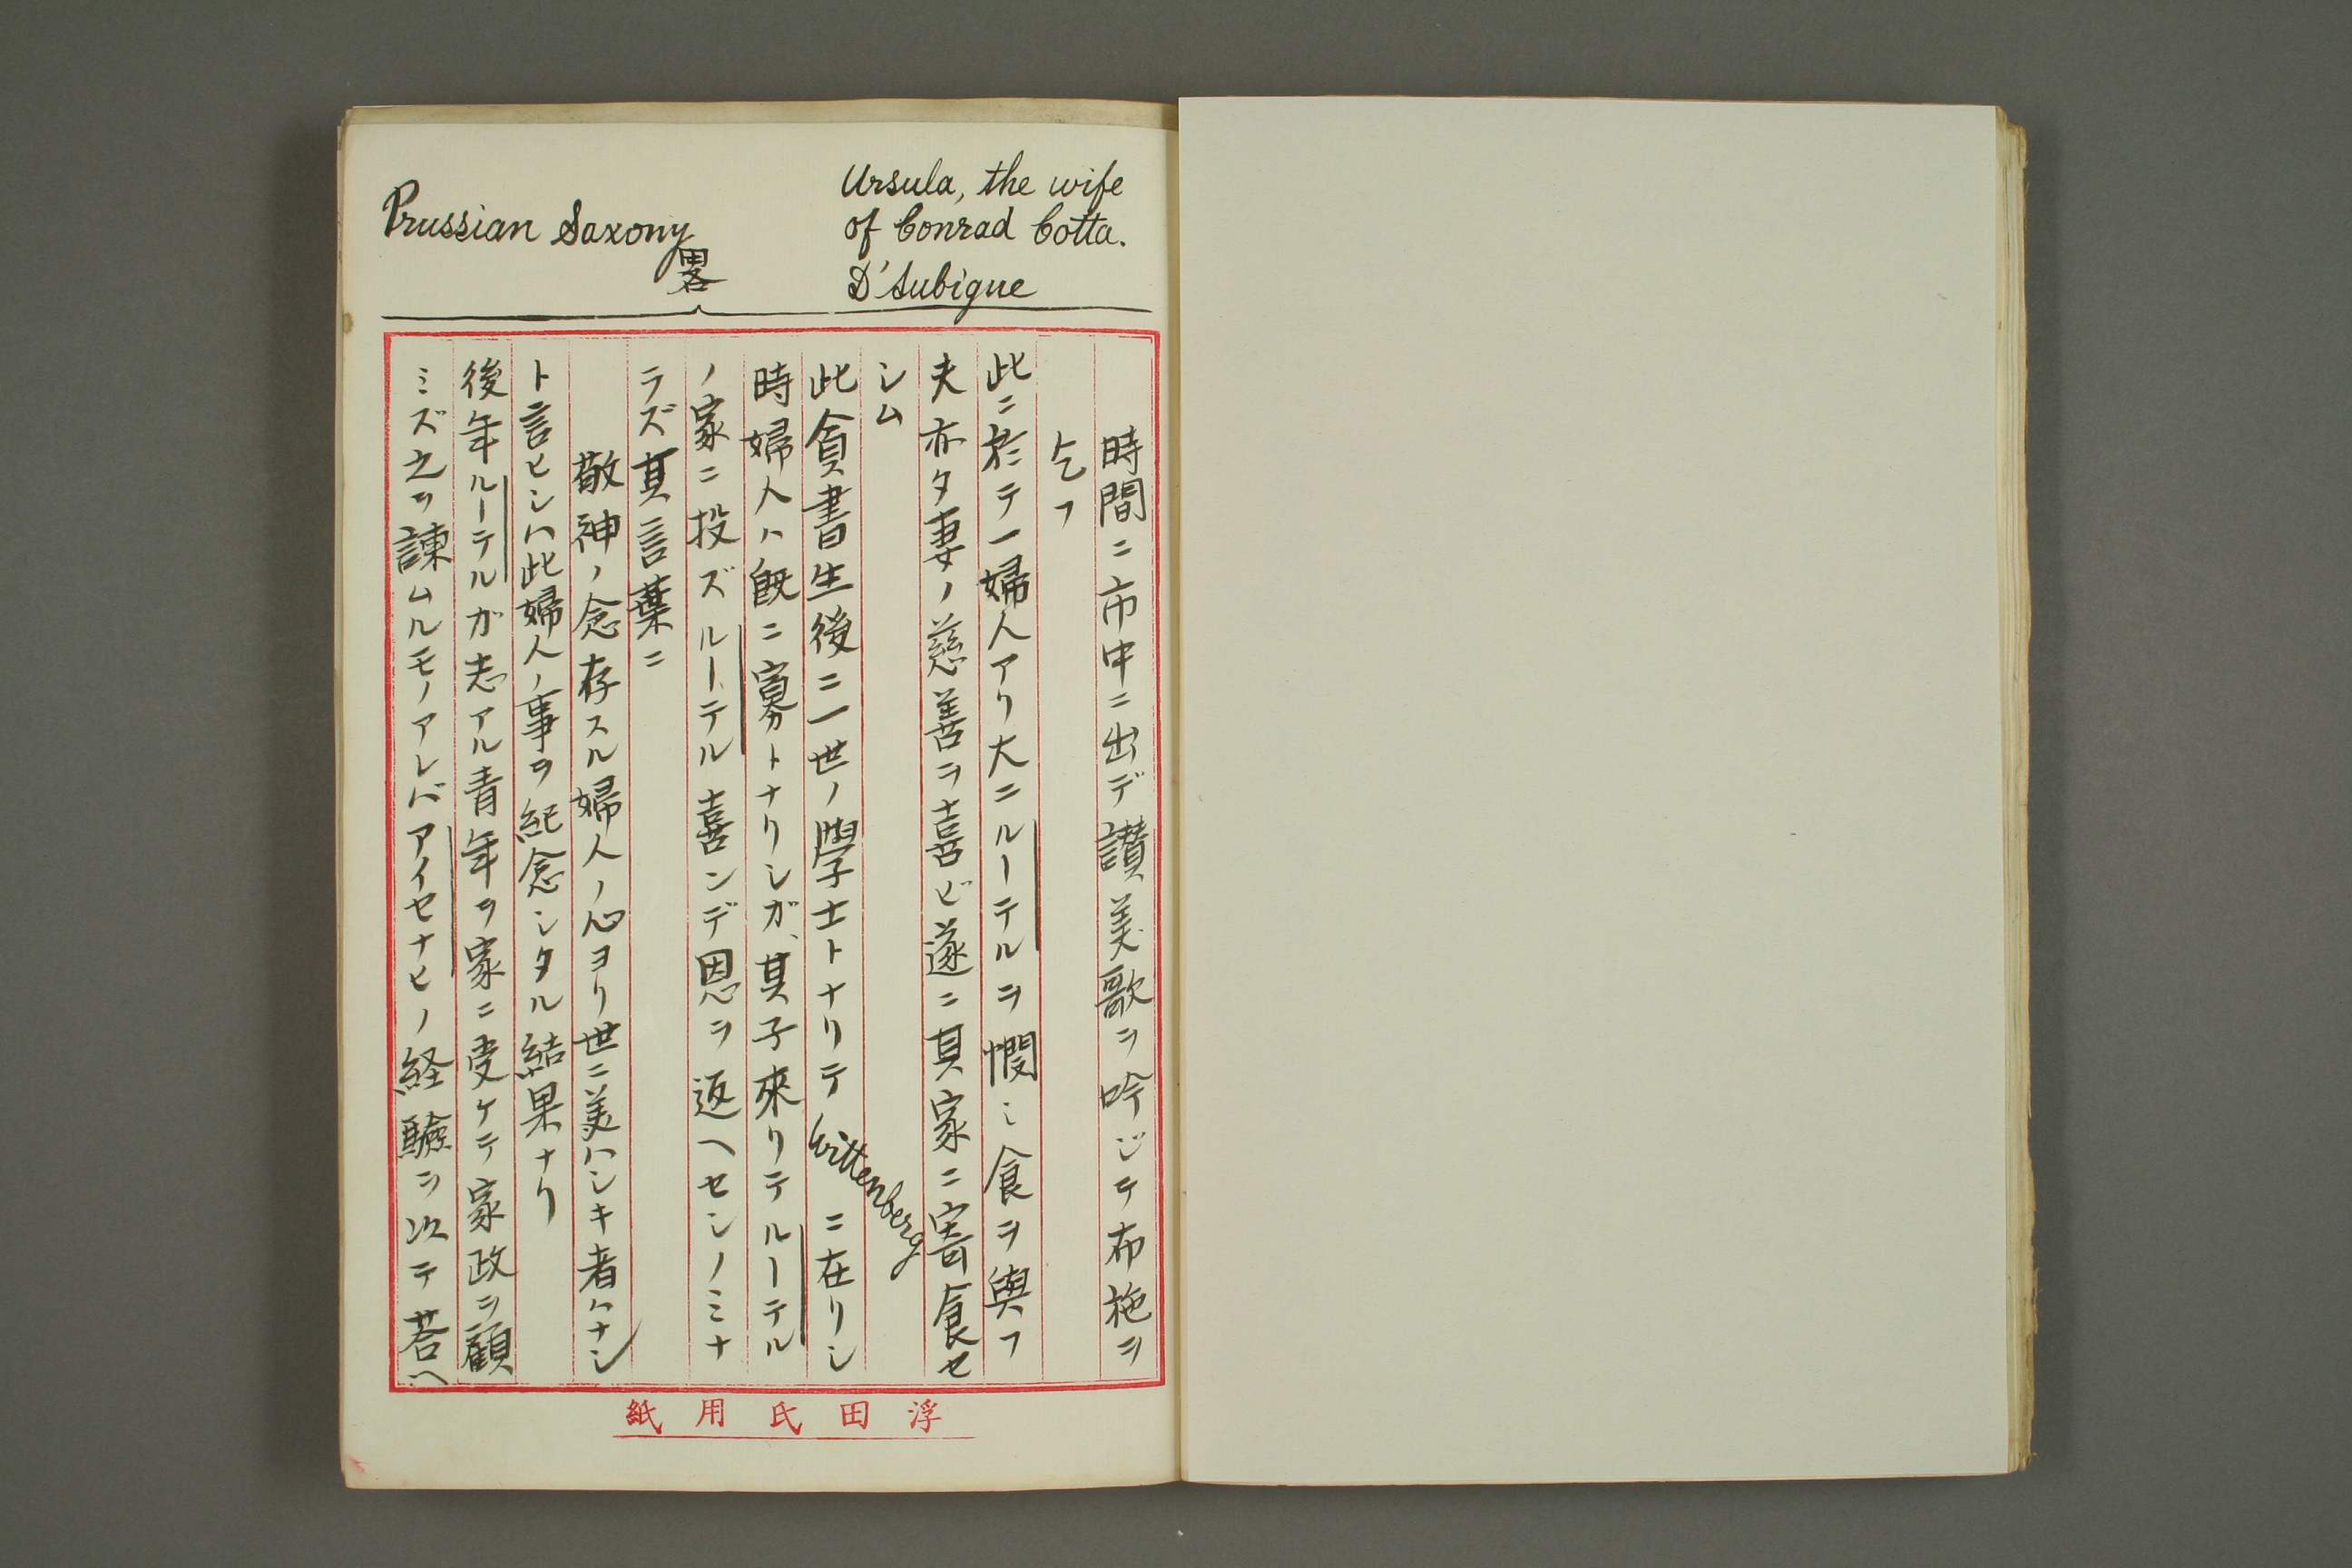 Ursula, the wife
of Conrad Cotta.
D'Aubigne
Prussian Saxony
畧
時間ニ市中ニ出デ讃美歌ヲ吟ジテ布施ヲ
乞フ
此ニ於テ一婦人アリ大ニルーテルヲ憫ミ食ヲ與フ
夫亦タ妻ノ慈善ヲ喜ビ遂ニ其家ニ寄食セ
シム
此貧書生後ニ一世ノ學士トナリテWittenbergニ在リシ
時婦人ハ既ニ寡トナリシガ、其子來リテルーテル
ノ家ニ投ズルーテル喜ンデ恩ヲ返ヘセシノミナ
ラズ其言葉ニ
敬神ノ念存スル婦人ノ心ヨリ世ニ美ハシキ者ハナシ
ト言ヒシハ此婦人ノ事ヲ紀念シタル結果ナリ
後年ルーテルガ志アル青年ヲ家ニ受ケテ家政ヲ顧
ミズ之ヲ諫ムルモノアレバアイセナヒノ経驗ヲ以テ荅ヘ
浮田氏用紙